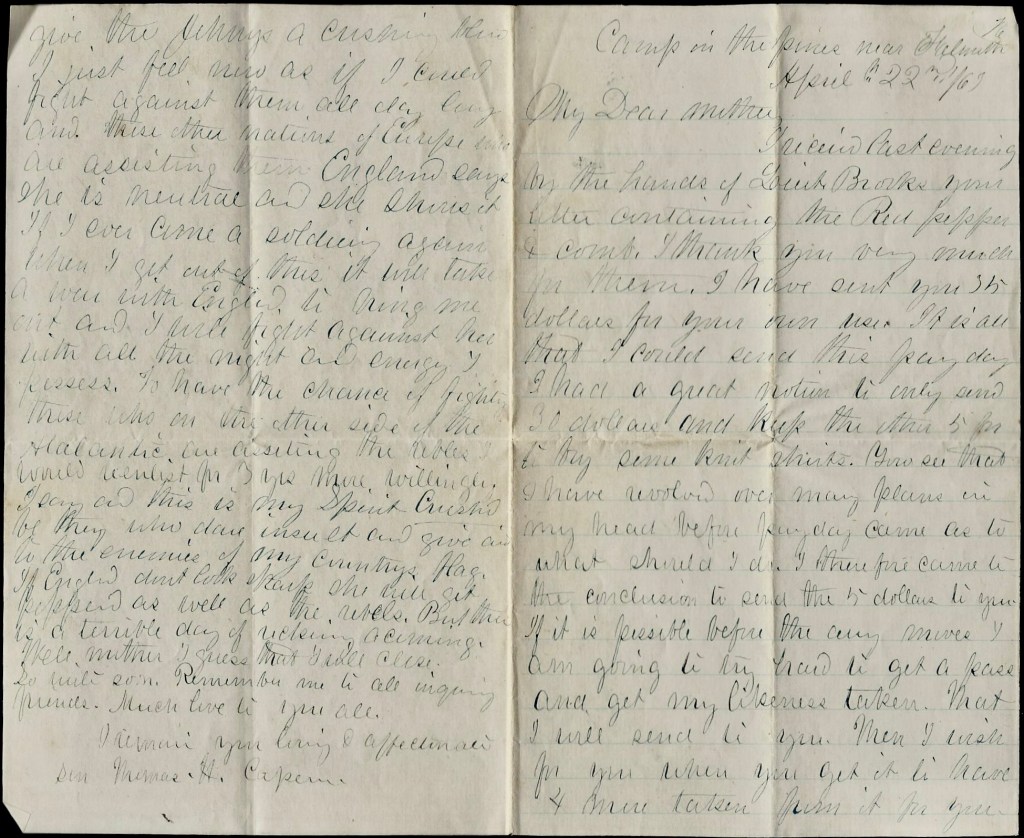 Camp in the pines near Falmouth
April 22nd /63
My Dear mother
I receivd last evening
by the hands of Lieut Brooks your
letter containing the Red pepper
& comb. I thank you very much
for them. I have sent you 35
dollars for your own use. It is all
that I could send this pay day
I had a great notion to only send
30 dollars and keep the other 5 for
to buy some knit shirts. You see that
I have revolved over many plans in
my head before payday came as to
what should I do. I therefore came to
the conclusion to send the 5 dollars to you
If it is possible before the army moves I
am going to try hard to get a pass
and get my likeness taken. That
I will send to you. Then I wish
for you when you get it to have
4 more taken from it for you
give the Johnys a crushing blow
I just feel now as if I could
fight against them all day long
and these other nations of Europe who
are assisting them England says
she is neutral and she shows it
If I ever come a soldiering again
when I get out of this it will take
a war with Englnd to bring me
out and I will fight against her
with all the might and energy I
possess. To have the chance of fighting
those who on the other side of the
Atalantic are assisting the rebles I
would reenlist for 3 yrs more willingly.
I say and this is my spirit Crushd
be they who dare insult and give aid
to the enemies of my countrys flag.
If Englnd dont look sharp she will get
pepperd as well as the rebels. But there
is a terrible day of reckning acoming.
Well mother I guess that I will close.
So write soon. Remember me to all inquiring
friends. Much love to you all.
I remain your loving & affectionate
son Thomas. H. Capern.